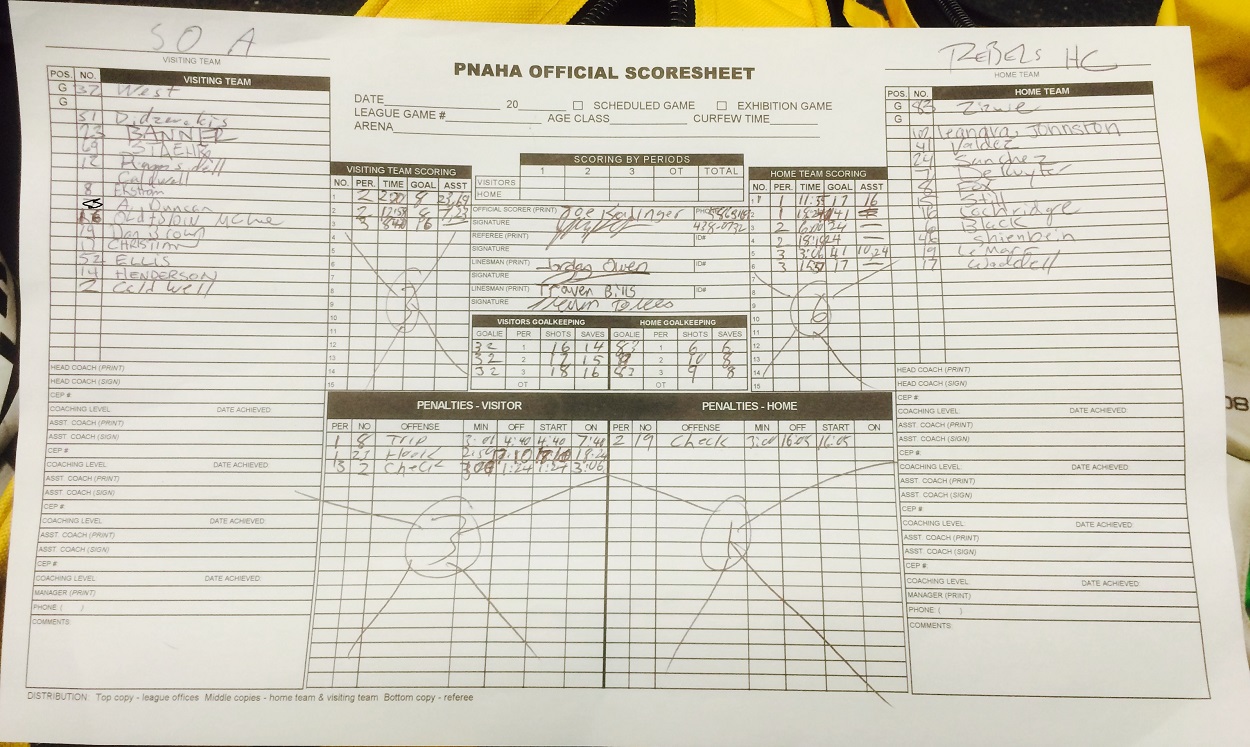 SO A
VISITING TEAM
REBELS HC
HOME TEAM
PNAHA OFFICIAL SCORESHEET
DATE 20 ☐ SCHEDULED GAME ☐ EXHIBITION GAME
LEAGUE GAME # AGE CLASS CURFEW TIME
ARENA
POS. NO. VISITING TEAM
G 32 West
G
51
23 BANNER
69
12
Caldwell
8 Ekstrom
A. Duncan
16
19
17 CHRISTIAN
52 ELLIS
14 HENDERSON
2 Caldwell
HEAD COACH (PRINT)
HEAD COACH (SIGN)
CEP #
COACHING LEVEL DATE ACHIEVED:
ASST. COACH (PRINT)
ASST. COACH (SIGN)
CEP #
COACHING LEVEL DATE ACHIEVED:
ASST. COACH (PRINT)
ASST. COACH (SIGN)
CEP #
COACHING LEVEL DATE ACHIEVED:
ASST. COACH (PRINT)
ASST. COACH (SIGN)
CEP #
COACHING LEVEL DATE ACHIEVED:
MANAGER (PRINT)
PHONE ( )
COMMENTS:
VISITING TEAM SCORING
NO. PER. TIME GOAL ASST
1 2 8
2 2
3 3 16 —
4
5
6
7
8
9
10
11
12
13
14
15
3
SCORING BY PERIODS
1 2 3 OT TOTAL
VISITORS
HOME
OFFICIAL SCORER (PRINT) Joe PHONE
SIGNATURE 438-0732
REFEREE (PRINT) ID#
SIGNATURE
LINESMAN (PRINT) Jordan Owen ID#
SIGNATURE
LINESMAN (PRINT) Traven Bills ID#
SIGNATURE
VISITORS GOALKEEPING HOME GOALKEEPING
GOALIE PER SHOTS SAVES GOALIE PER SHOTS SAVES
32 1 16 14 83 1 6 6
32 2 17 15 2 10 8
32 3 18 16 83 3 9 8
OT OT
HOME TEAM SCORING
NO. PER. TIME GOAL ASST
1 1 11:35 17 16
2 1 41
3 2 24 —
4 2 18:19 24 —
5 3 3:06 41 10,24
6 3 17 —
7
8
9
10
11
12
13
14
15
6
POS. NO. HOME TEAM
G 83
G
Leandra Johnston
41 Valdez
24 Sanchez
7 DeRuyter
8 Fox
15 Still
16 Lochridge
Black
Shienbein
19 LeMar
17 Waddell
HEAD COACH (PRINT)
HEAD COACH (SIGN)
CEP #
COACHING LEVEL DATE ACHIEVED:
ASST. COACH (PRINT)
ASST. COACH (SIGN)
CEP #
COACHING LEVEL DATE ACHIEVED:
ASST. COACH (PRINT)
ASST. COACH (SIGN)
CEP #
COACHING LEVEL DATE ACHIEVED:
ASST. COACH (PRINT)
ASST. COACH (SIGN)
CEP #
COACHING LEVEL DATE ACHIEVED:
MANAGER (PRINT)
PHONE ( )
COMMENTS:
PENALTIES - VISITOR PENALTIES - HOME
PER NO OFFENSE MIN OFF START ON PER NO OFFENSE MIN OFF START ON
1 8 Trip 4:40 4:40 7:40 2 19 Check 3:00 16:05 16:05
1 23 Hook
3 2 Check 1:24 1:24 3:06
3
1
DISTRIBUTION: Top copy - league offices Middle copies - home team & visiting team Bottom copy - referee
08